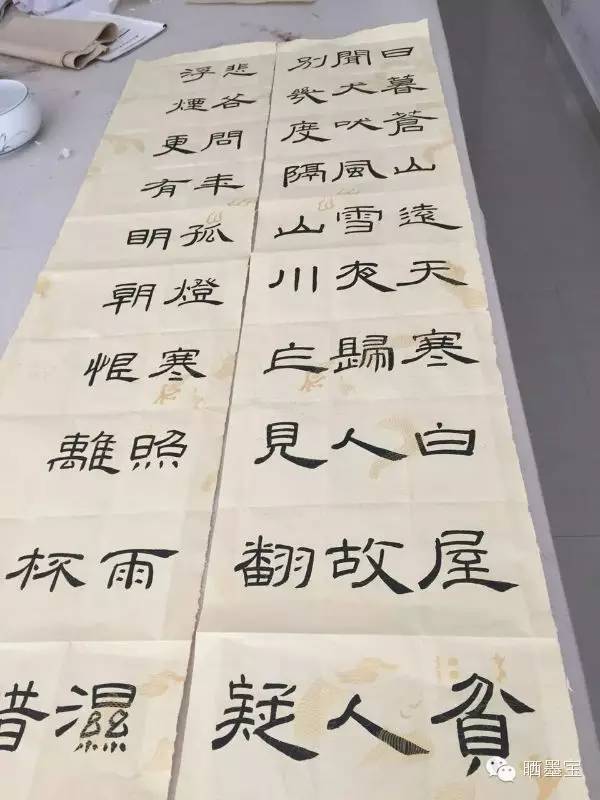 日暮蒼山遠天寒白屋貧
聞犬吠風雪夜歸人故人
別幾度隔山川乍見翻疑
悲各問年孤燈寒照雨濕
浮煙更有明朝恨離杯惜
晒墨宝